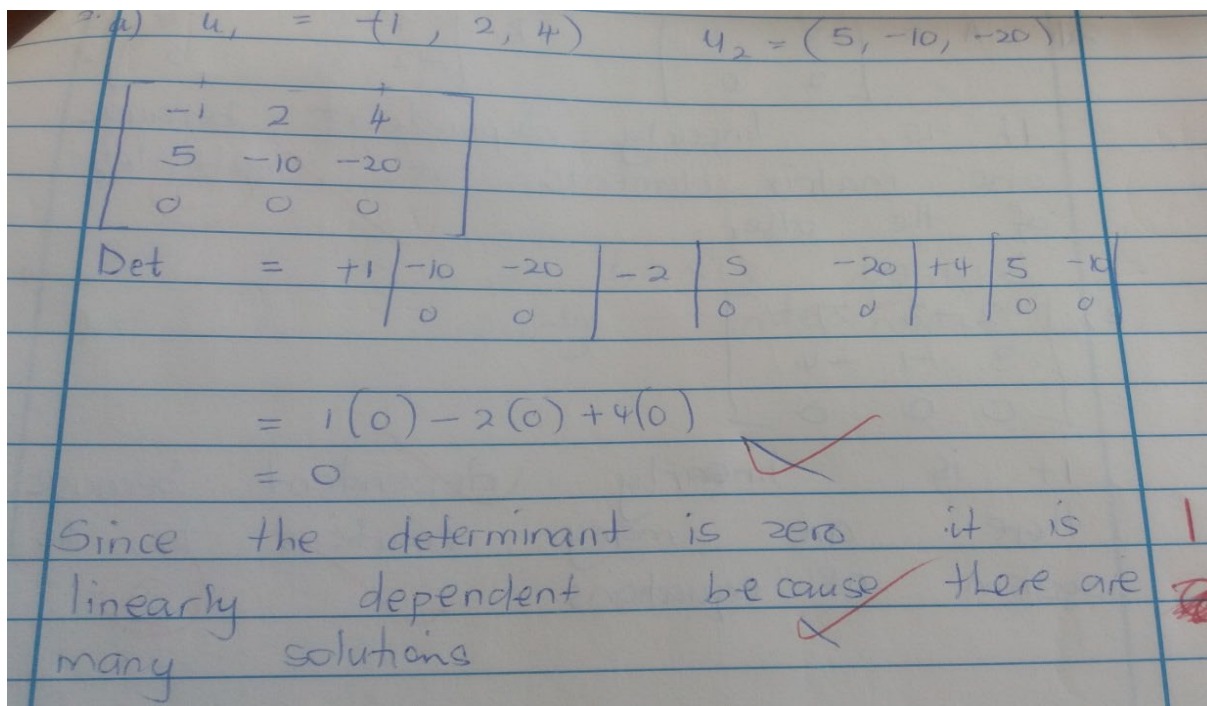 a) u₁ = (-1, 2, 4) u₂ = (5, -10, -20)
-1 2 4
5 -10 -20
0 0 0
Det = +1 |-10 -20| -2 |5 -20| +4 |5 -10|
0 0 0 0 0 0
= 1(0) - 2(0) + 4(0)
= 0
Since the determinant is zero it is 1
linearly dependent because there are
many solutions